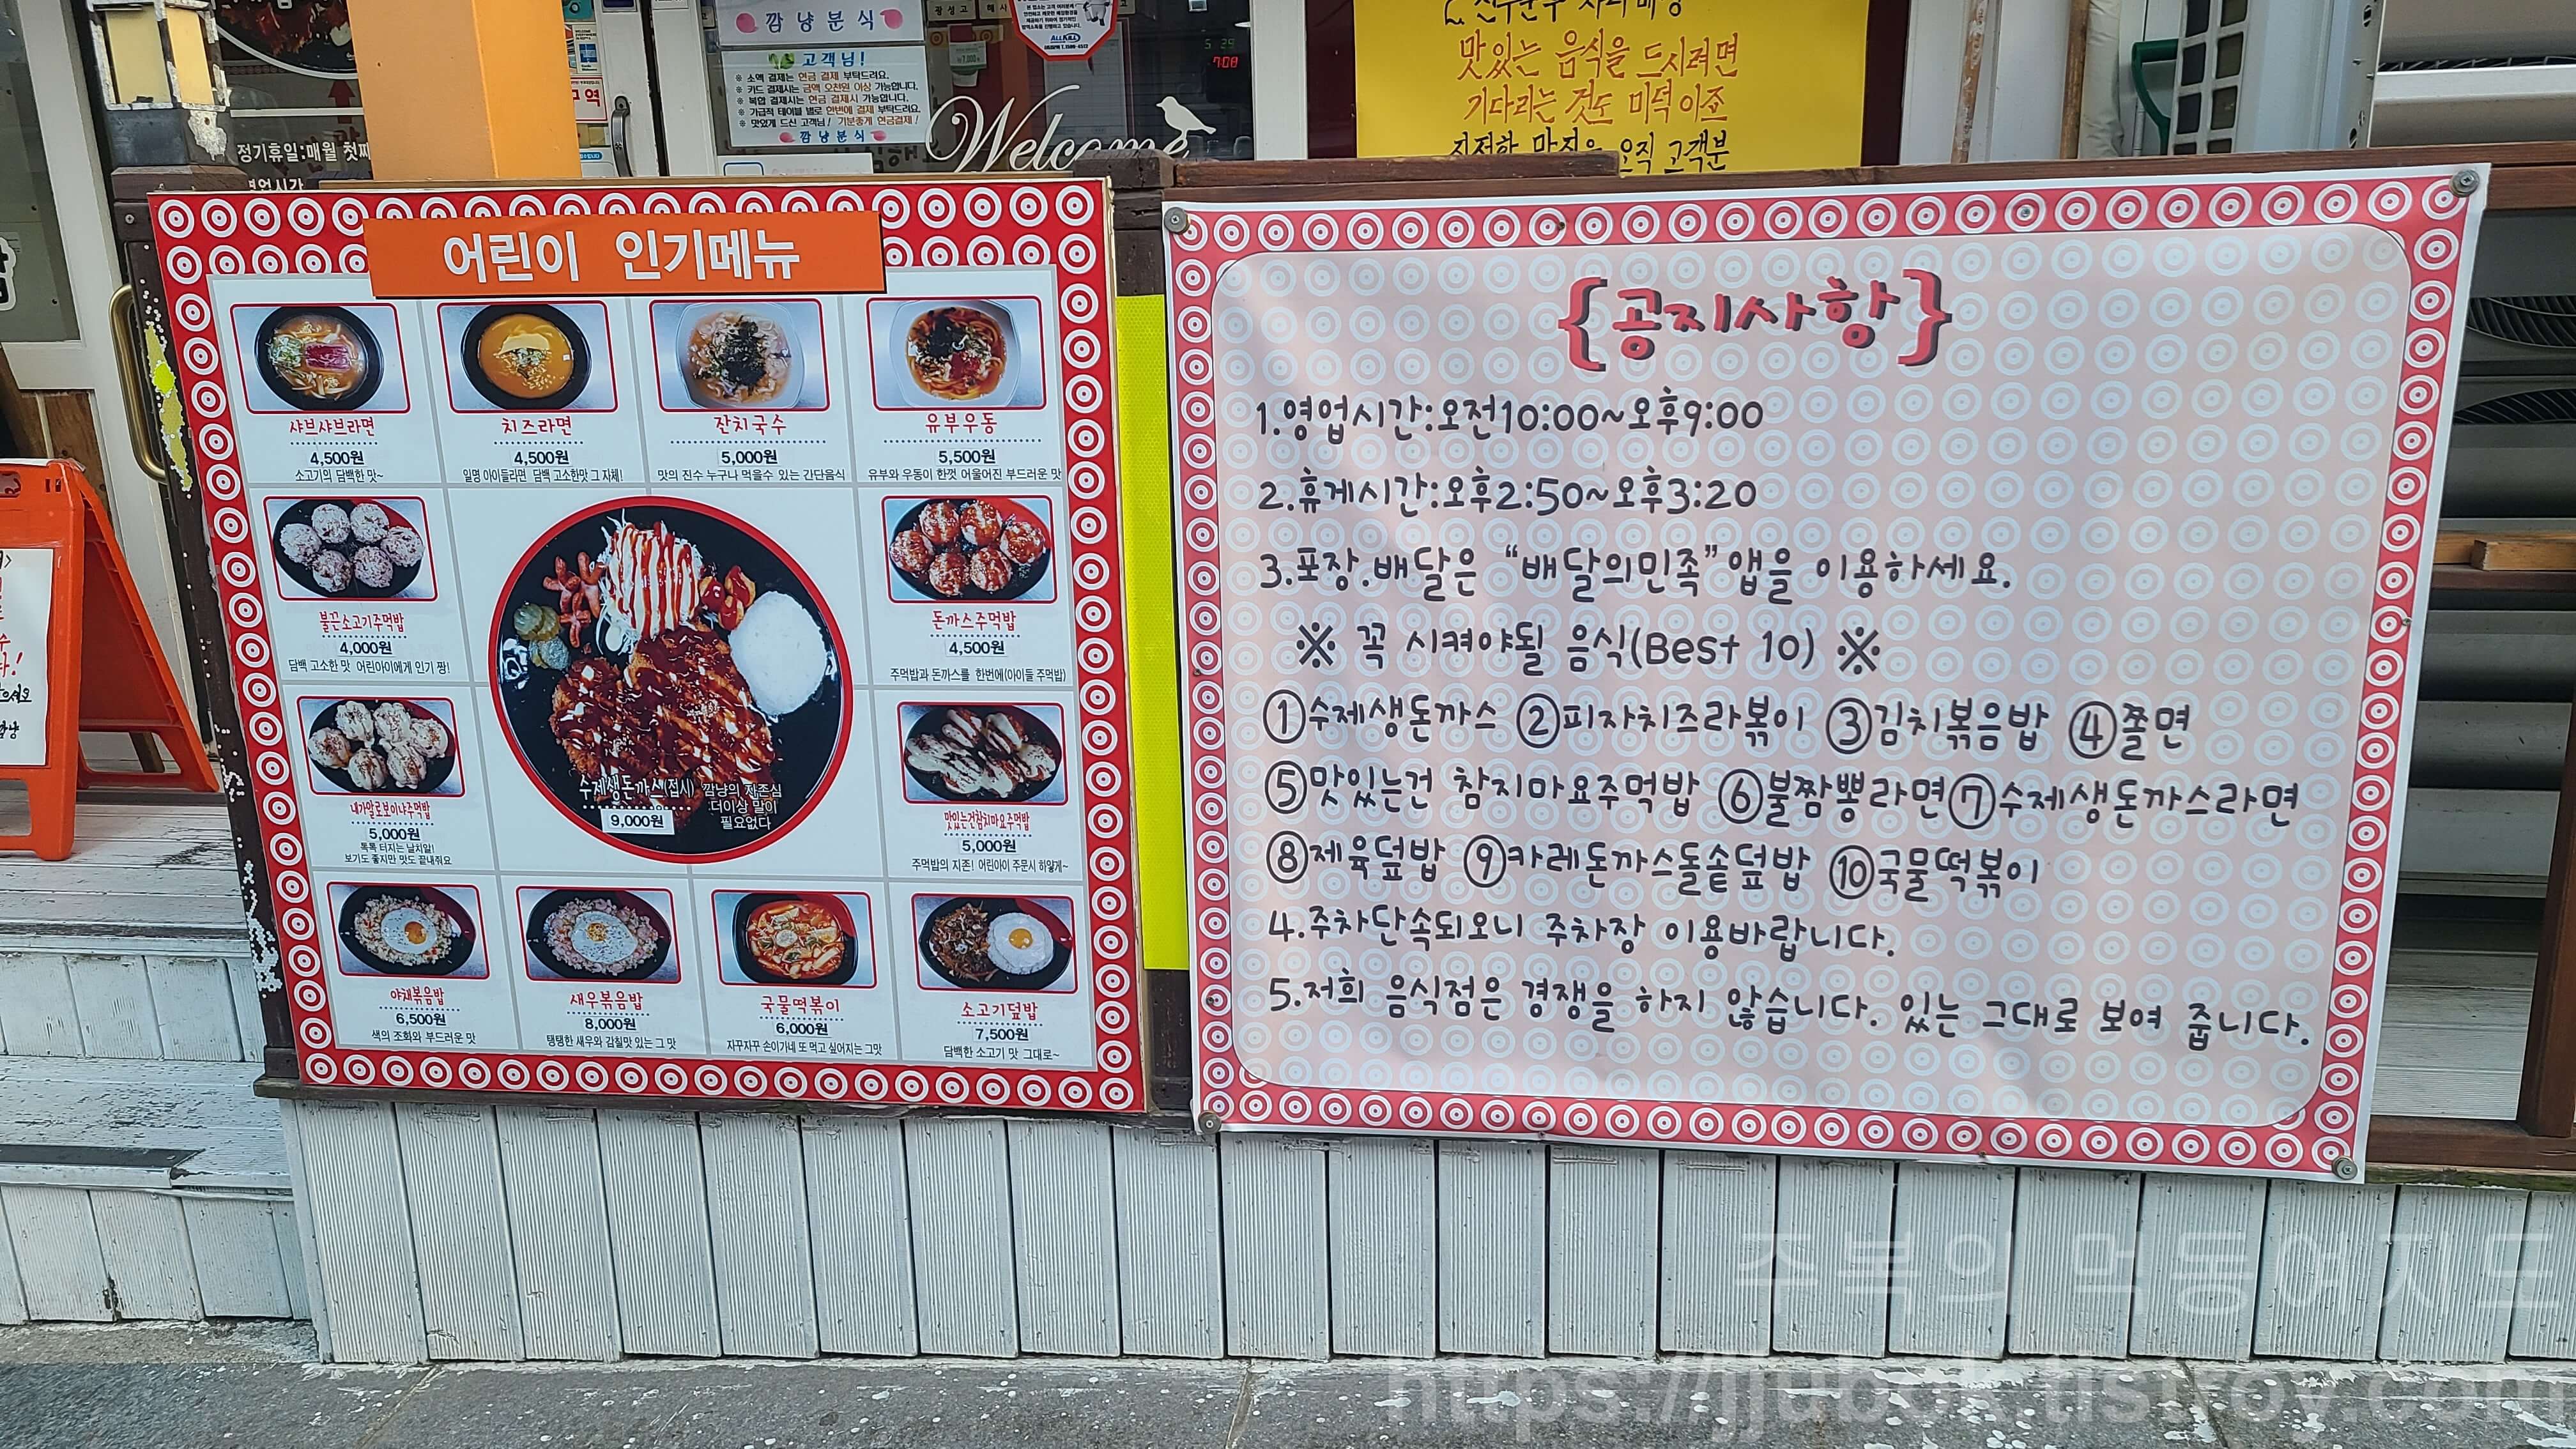 깜냥분식
고객님!
※ 소액 결제는 현금 결제 부탁드려요.
※ 카드 결제시는 금액 오천원 이상 가능합니다.
※ 복합 결제시는 현금 결제시 가능합니다.
※ 가급적 테이블 별로 한번에 결제 부탁드려요.
※ 맛있게 드신 고객님! 기분좋게 현금결제!
깜냥분식
Welcome
맛있는 음식을 드시려면
기다리는 것도 미덕이죠
오직 고객분
정기휴일:매월 첫째
어린이 인기메뉴
샤브샤브라면
4,500원
소고기의 담백한 맛~
치즈라면
4,500원
일명 아이들라면 담백 고소한맛 그 자체!
잔치국수
5,000원
맛의 진수 누구나 먹을수 있는 간단음식
유부우동
5,500원
유부와 우동이 한껏 어울어진 부드러운 맛
불끈소고기주먹밥
4,000원
담백 고소한 맛 어린아이에게 인기 짱!
돈까스주먹밥
4,500원
주먹밥과 돈까스를 한번에(아이들 주먹밥)
내가알로보이냐주먹밥
5,000원
톡톡 터지는 날치알!
보기도 좋지만 맛도 끝내줘요
수제생돈까스(접시)
9,000원
깜냥의 자존심
더이상 말이
필요없다
맛있는건참치마요주먹밥
5,000원
주먹밥의 지존! 어린아이 주문시 하얗게~
야채볶음밥
6,500원
색의 조화와 부드러운 맛
새우볶음밥
8,000원
탱탱한 새우와 감칠맛 있는 그 맛
국물떡볶이
6,000원
자꾸자꾸 손이가네 또 먹고 싶어지는 그맛
소고기덮밥
7,500원
담백한 소고기 맛 그대로~
{공지사항}
1.영업시간:오전10:00~오후9:00
2.휴게시간:오후2:50~오후3:20
3.포장.배달은 “배달의민족”앱을 이용하세요.
※ 꼭 시켜야될 음식(Best 10) ※
①수제생돈까스 ②피자치즈라볶이 ③김치볶음밥 ④쫄면
⑤맛있는건 참치마요주먹밥 ⑥불짬뽕라면⑦수제생돈까스라면
⑧제육덮밥 ⑨카레돈까스돌솥덮밥 ⑩국물떡볶이
4.주차단속되오니 주차장 이용바랍니다.
5.저희 음식점은 경쟁을 하지 않습니다. 있는 그대로 보여 줍니다.
주복의 먹동여지도
https://jjubok.tistroy.com